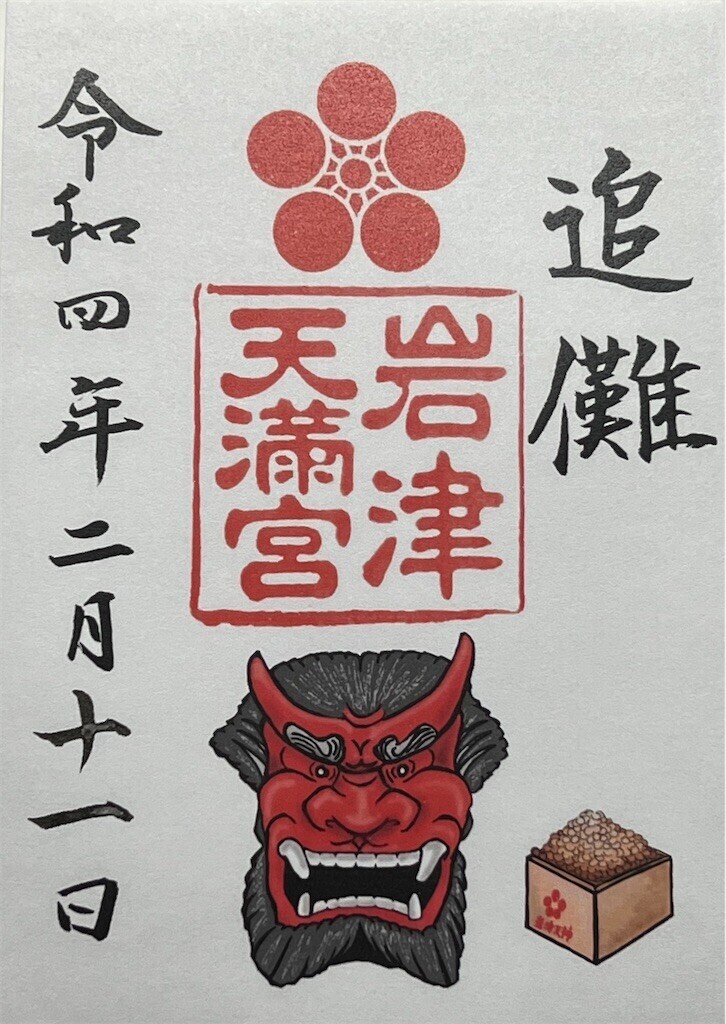 追儺
岩津
天満宮
令和四年二月十一日
岩津天神